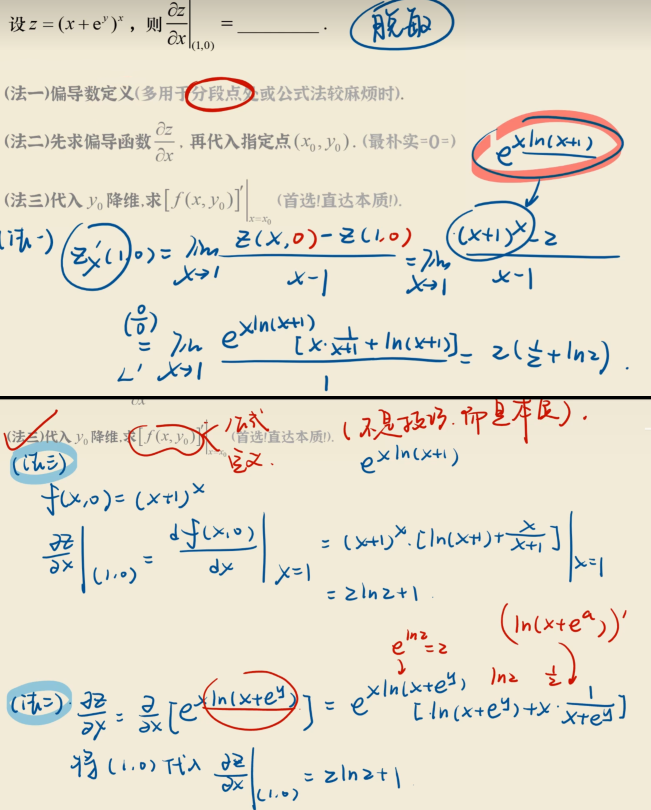 设 z = (x + e^y)^x ，则 ∂z/∂x |_(1,0) = ________ .
脱敏
(法一)偏导数定义(多用于分段点处或公式法较麻烦时).
(法二)先求偏导函数 ∂z/∂x . 再代入指定点(x_0, y_0). (最朴实=0=)
e^{xln(x+1)}
(法三)代入 y_0 降维,求[f(x, y_0)]'|_{x=x_0} (首选!直达本质!).
(法一) z'_x(1,0) = lim_{x→1} (z(x,0) - z(1,0))/(x-1) = lim_{x→1} ((x+1)^x - 2)/(x-1)
(0/0) = L' lim_{x→1} e^{xln(x+1)} [x·1/(x+1) + ln(x+1)] / 1 = 2(1/2 + ln2) .
(法三)代入 y_0 降维,求[f(x, y_0)]'|_{x=x_0} (首选!直达本质!).
公式
定义
(不是技巧.而是本质).
(法三)
e^{xln(x+1)}
f(x,0) = (x+1)^x
∂z/∂x |_(1,0) = df(x,0)/dx |_{x=1} = (x+1)^x · [ln(x+1) + x/(x+1)] |_{x=1}
= 2ln2+1 .
(ln(x+e^a))'
e^{ln2} = 2
ln2 1/2
(法二). ∂z/∂x = ∂/∂x [e^{xln(x+e^y)}] = e^{xln(x+e^y)} [ln(x+e^y) + x · 1/(x+e^y)]
将 (1,0) 代入 ∂z/∂x |_(1,0) = 2ln2+1 .